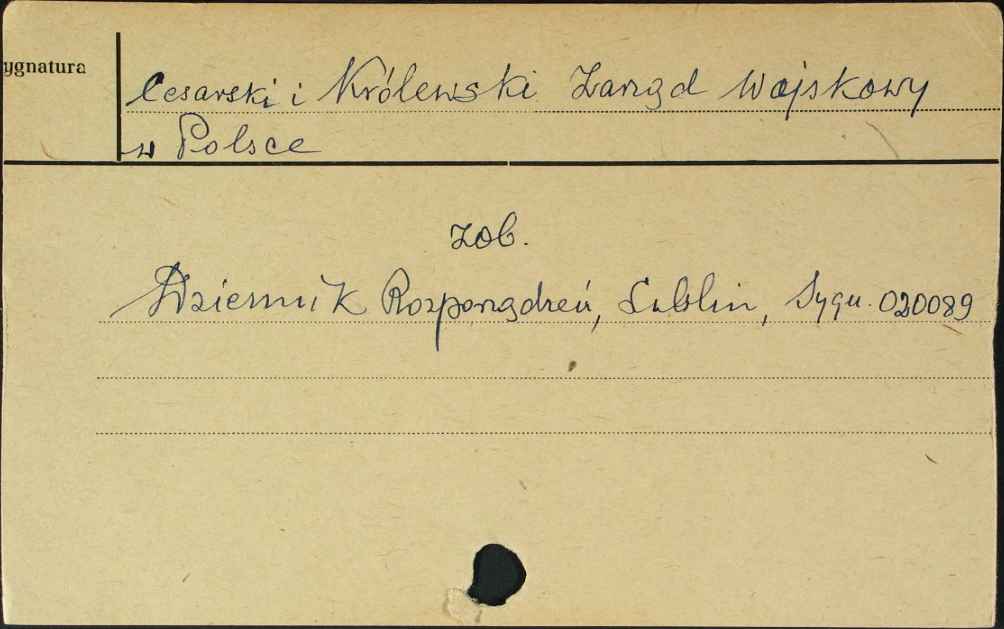 ygnatura
Cesarski i Królewski Zarząd Wojskowy
w Polsce
zob.
Dziennik Rozporządzeń, Lublin, Sygn. 020089